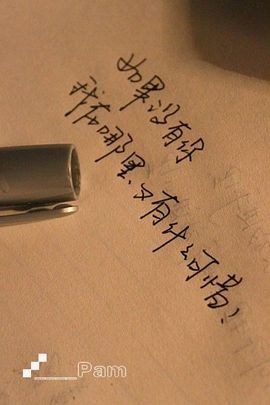 如果没有你
我在哪里又有什么可惜!
Pam